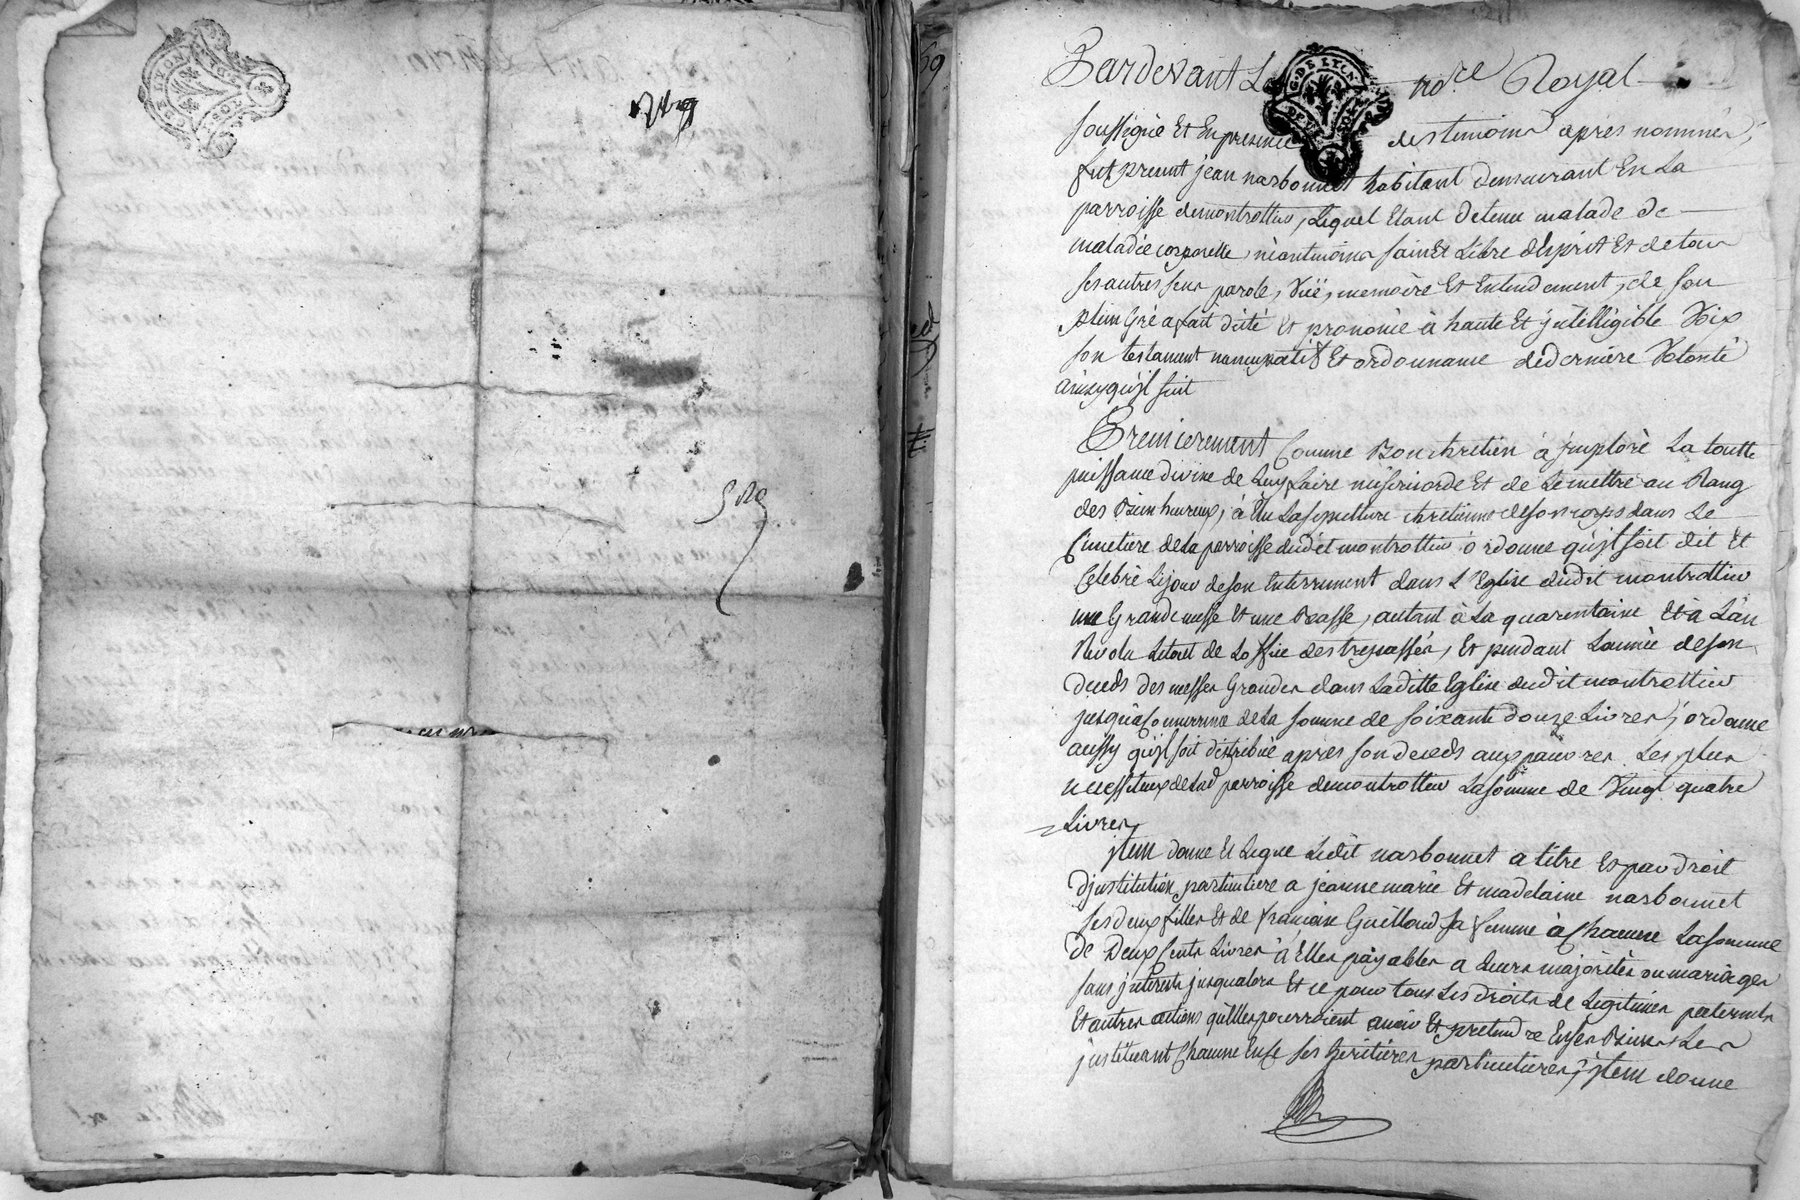 G. DE LYON
Pardevant Le no.re Royal
soussigné Et En presence des temoins apres nommés,
fut present jean narbonnet habitant demeurant En La
parroisse demontrottier, Lequel Etant detenu malade de
maladie corporelle, néantmoins sain Et Libre d'Esprit Et de tous
ses autres sens parole, Vüe, memoire Et Entendement, de son
plein Gré a fait dicté Et prononcé à haute Et jntélligible Voix
son testament nuncupatif Et ordonnance de derniere Volonté
ainsy qu'jl suit
Premierement Comme Bon chretien à jmploré La toutte
puissance divine de Luy faire misericorde Et de Le mettre au Rang
des Bienheureux, à Elu La sepulture chretienne de son corps dans Le
Cimetiere de La parroisse dudit montrottier ordonne qu'jl soit dit Et
Celebré Le jour de son Enterrement dans L'Eglise dudit montrottier
une Grande messe Et une Basse, autant à La quarentaine Et à L'an
Revolu Le tout de Loffice des trepassés, Et pendant L'année de son
deceds des messes Grandes dans Laditte Eglise dudit montrottier
jusqu'a Concurrence de La somme de soixante douze Livres, jl ordonne
aussy qu'jl soit distribué apres son deceds aux pauvres Les plus
necessiteux de Lad parroisse demontrottier La somme de Vingt quatre
Livres
jtem donne Et Legue Ledit narbonnet a titre Et par droit
D'jnstitution particuliere a jeanne marie Et madelaine narbonnet
ses deux filles Et de francoise Guillaud sa femme à Chacune La somme
de Deux Cents Livres à Elles payables a Leurs majorités ou mariages
sans jnterets jusqualors Et ce pour tous Les droits de Legitimes paternels
Et autres actions qu'Elles pourroient avoir Et pretendre En ses Biens Les
jnstituant Chacune En ce ses heritieres particulieres, jtem donne